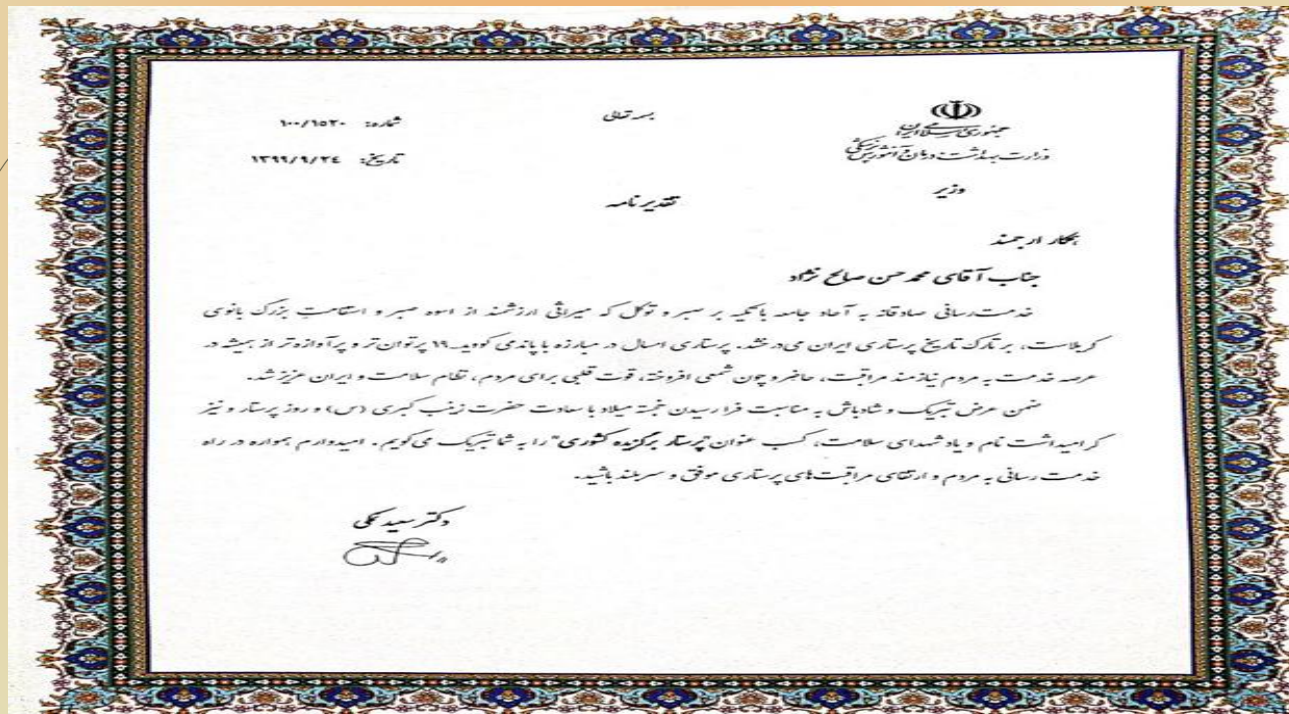 جمهوری اسلامی ایران
وزارت بهداشت، درمان و آموزش پزشکی
وزیر
بسمه تعالی
شماره: ۱۰۰/۱۵۲۰
تاریخ: ۱۳۹۹/۹/۲۴
تقدیرنامه
همکار ارجمند
جناب آقای محمدحسن صالح نژاد
خدمت‌رسانی صادقانه به آحاد جامعه با تکیه بر صبر و توکل که میراثی ارزشمند از اسوه صبر و استقامت بزرگ بانوی
کربلاست، بر تارک تاریخ پرستاری ایران می‌درخشد. پرستاری امسال در مبارزه با پاندمی کووید-۱۹ پرتوان‌تر و پرآوازه‌تر از همیشه در
عرصه خدمت به مردم نیازمند مراقبت، حاضر و چون شمعی افروخته، قوت قلبی برای مردم، نظام سلامت و ایران عزیز شد.
ضمن عرض تبریک و شادباش به مناسبت فرا رسیدن خجسته میلاد با سعادت حضرت زینب کبری (س) و روز پرستار و نیز
گرامیداشت نام و یاد شهدای سلامت، کسب عنوان "پرستار برگزیده کشوری" را به شما تبریک می‌گویم. امیدوارم همواره در راه
خدمت رسانی به مردم و ارتقای مراقبت‌های پرستاری موفق و سربلند باشید.
دکتر سعید نمکی